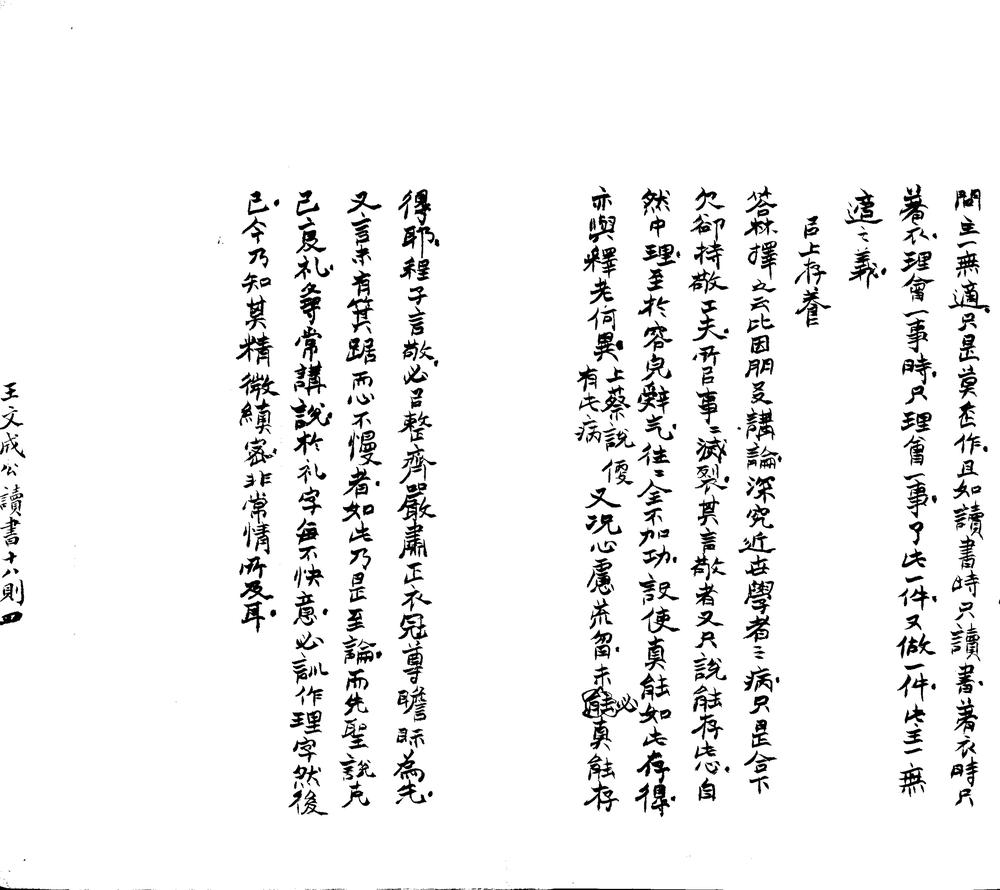 問主一無適只是莫走作且如讀書時只讀書著衣時只
著衣理會一事時只理會一事了此一件又做一件此主一無
適之義
㠯上存養
答林擇之云比因朋友講論深究近世學者之病只是合下
欠卻持敬工夫所㠯事〻滅裂其言敬者又只說能存此心自
然中理至於容皃辭气往〻全不加功設使真能如此存得
亦與釋老何異上蔡說
有此病優又況心慮荒忽未必真能存
得耶程子言敬必㠯整齊嚴肅正衣冠尊瞻眎為先
又言未有箕踞而心不慢者如此乃是至論而先聖說克
己復礼尋常講說於礼字每不快意必訓作理字然後
已今乃知其精微縝密非常情所及耳
王文成公讀書十八則 四